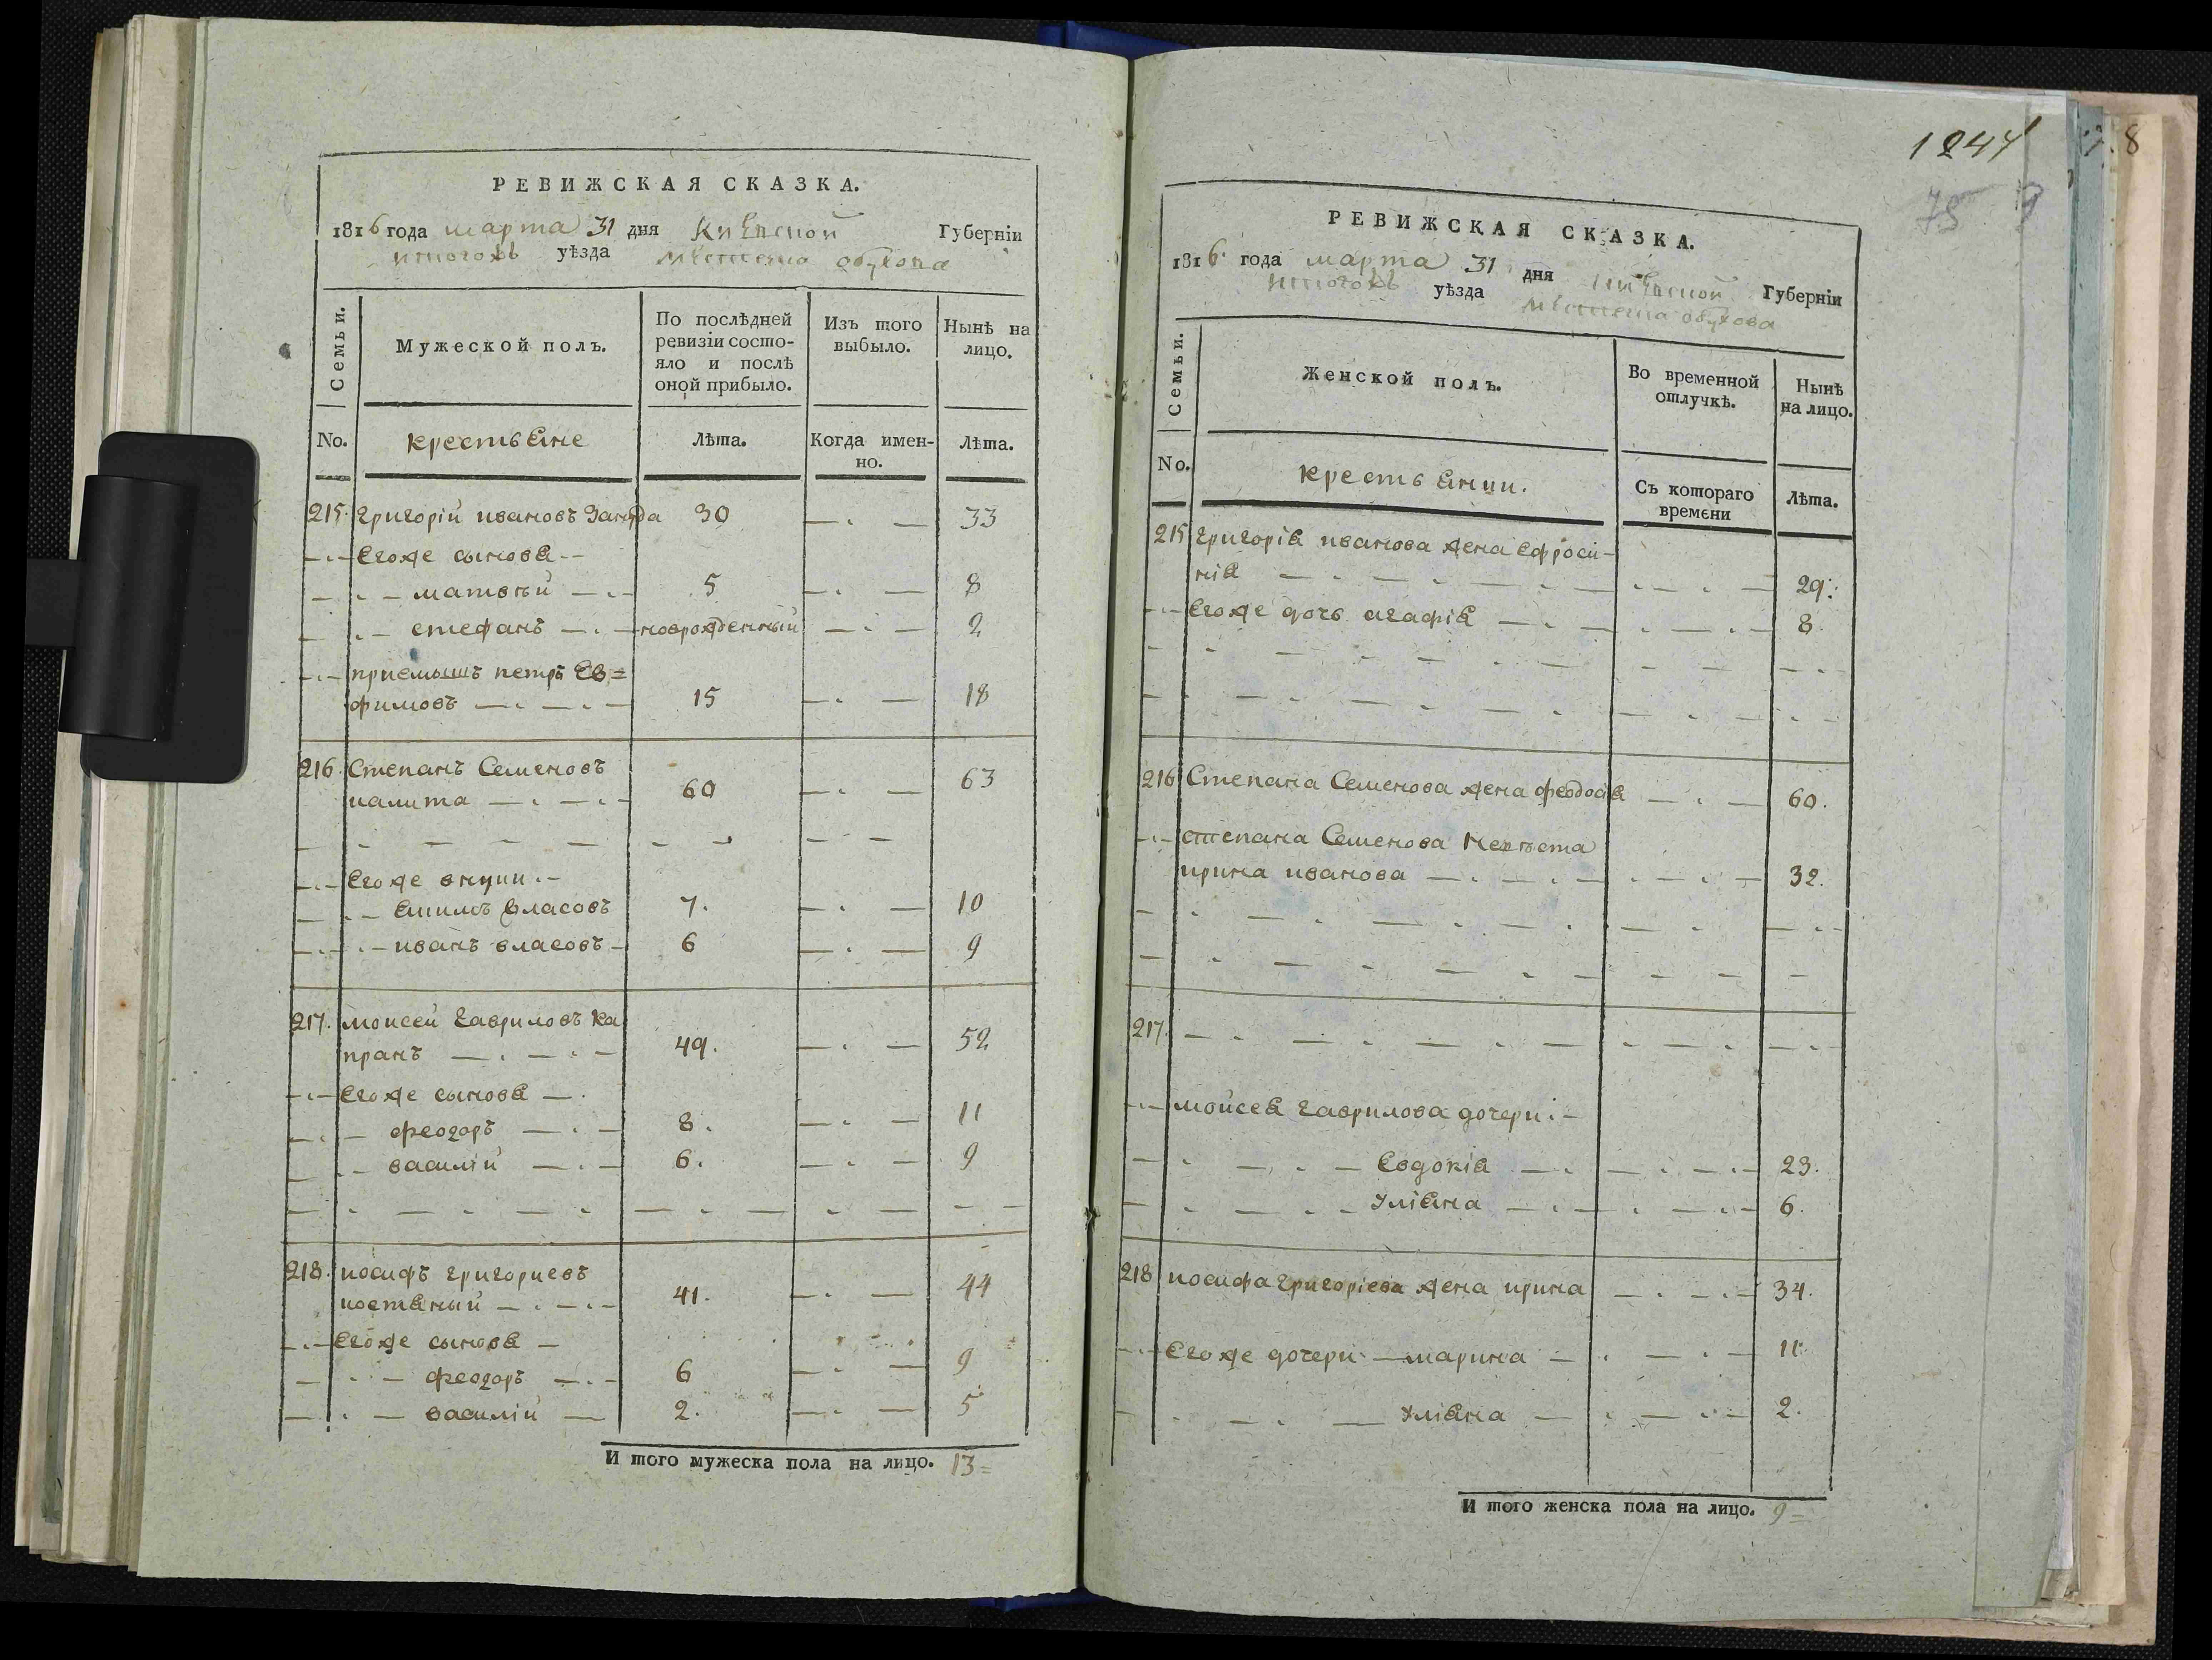 РЕВИЖСКАЯ СКАЗКА.
1816 года марта 31 дня Киевской Губерніи
итогохъ уѣзда местечка обухова
Семьи.
Мужеской полъ.
По послѣдней ревизіи состо-
яло и послѣ оной прибыло.
Изъ того выбыло.
Нынѣ на лицо.
No.
крестьяне
Лѣта.
Когда имен-
но.
Лѣта.
215. григорій ивановъ 30 — . — 33
Егоже сыновя
матвѣй 5 — . — 8
стефанъ новрожденный — . — 2
приемышъ петръ Ев=
фимовъ 15 — . — 18
216. Степанъ Семеновъ
калита 60 — . — 63
Егоже внуки
Екимъ власовъ 7. — . — 10
иванъ власовъ 6 — . — 9
217. моисей гавриловъ ка
пранъ 49. — . — 52
Егоже сыновя
феодоръ 8. — . — 11
василій 6. — . — 9
218. иосифъ григориевъ
костяный 41. — . — 44
Егоже сыновя
феодоръ 6 — . — 9
василій 2. — . — 5
И того мужеска пола на лицо. 13=
1244
75
9
8
РЕВИЖСКАЯ СКАЗКА.
1816 года марта 31 дня киевской Губерніи
уѣзда местечка обухова
Семьи.
Женской полъ.
Во временной отлучкѣ.
Нынѣ на лицо.
No.
крестьянки.
Съ котораго времени
Лѣта.
215 григорія иванова жена Ефроси-
нія 29.
Егоже дочь агафія 8.
216 Степана Семенова жена феодосія 60.
степана Семенова Невѣста
ирина иванова 32.
217.
моисея гаврилова дочери
Евдокія 23.
Уліяна 6.
218 иосифа григоріева жена ирина 34.
Егоже дочери марина 11.
Уліяна 2.
И того женска пола на лицо. 9=